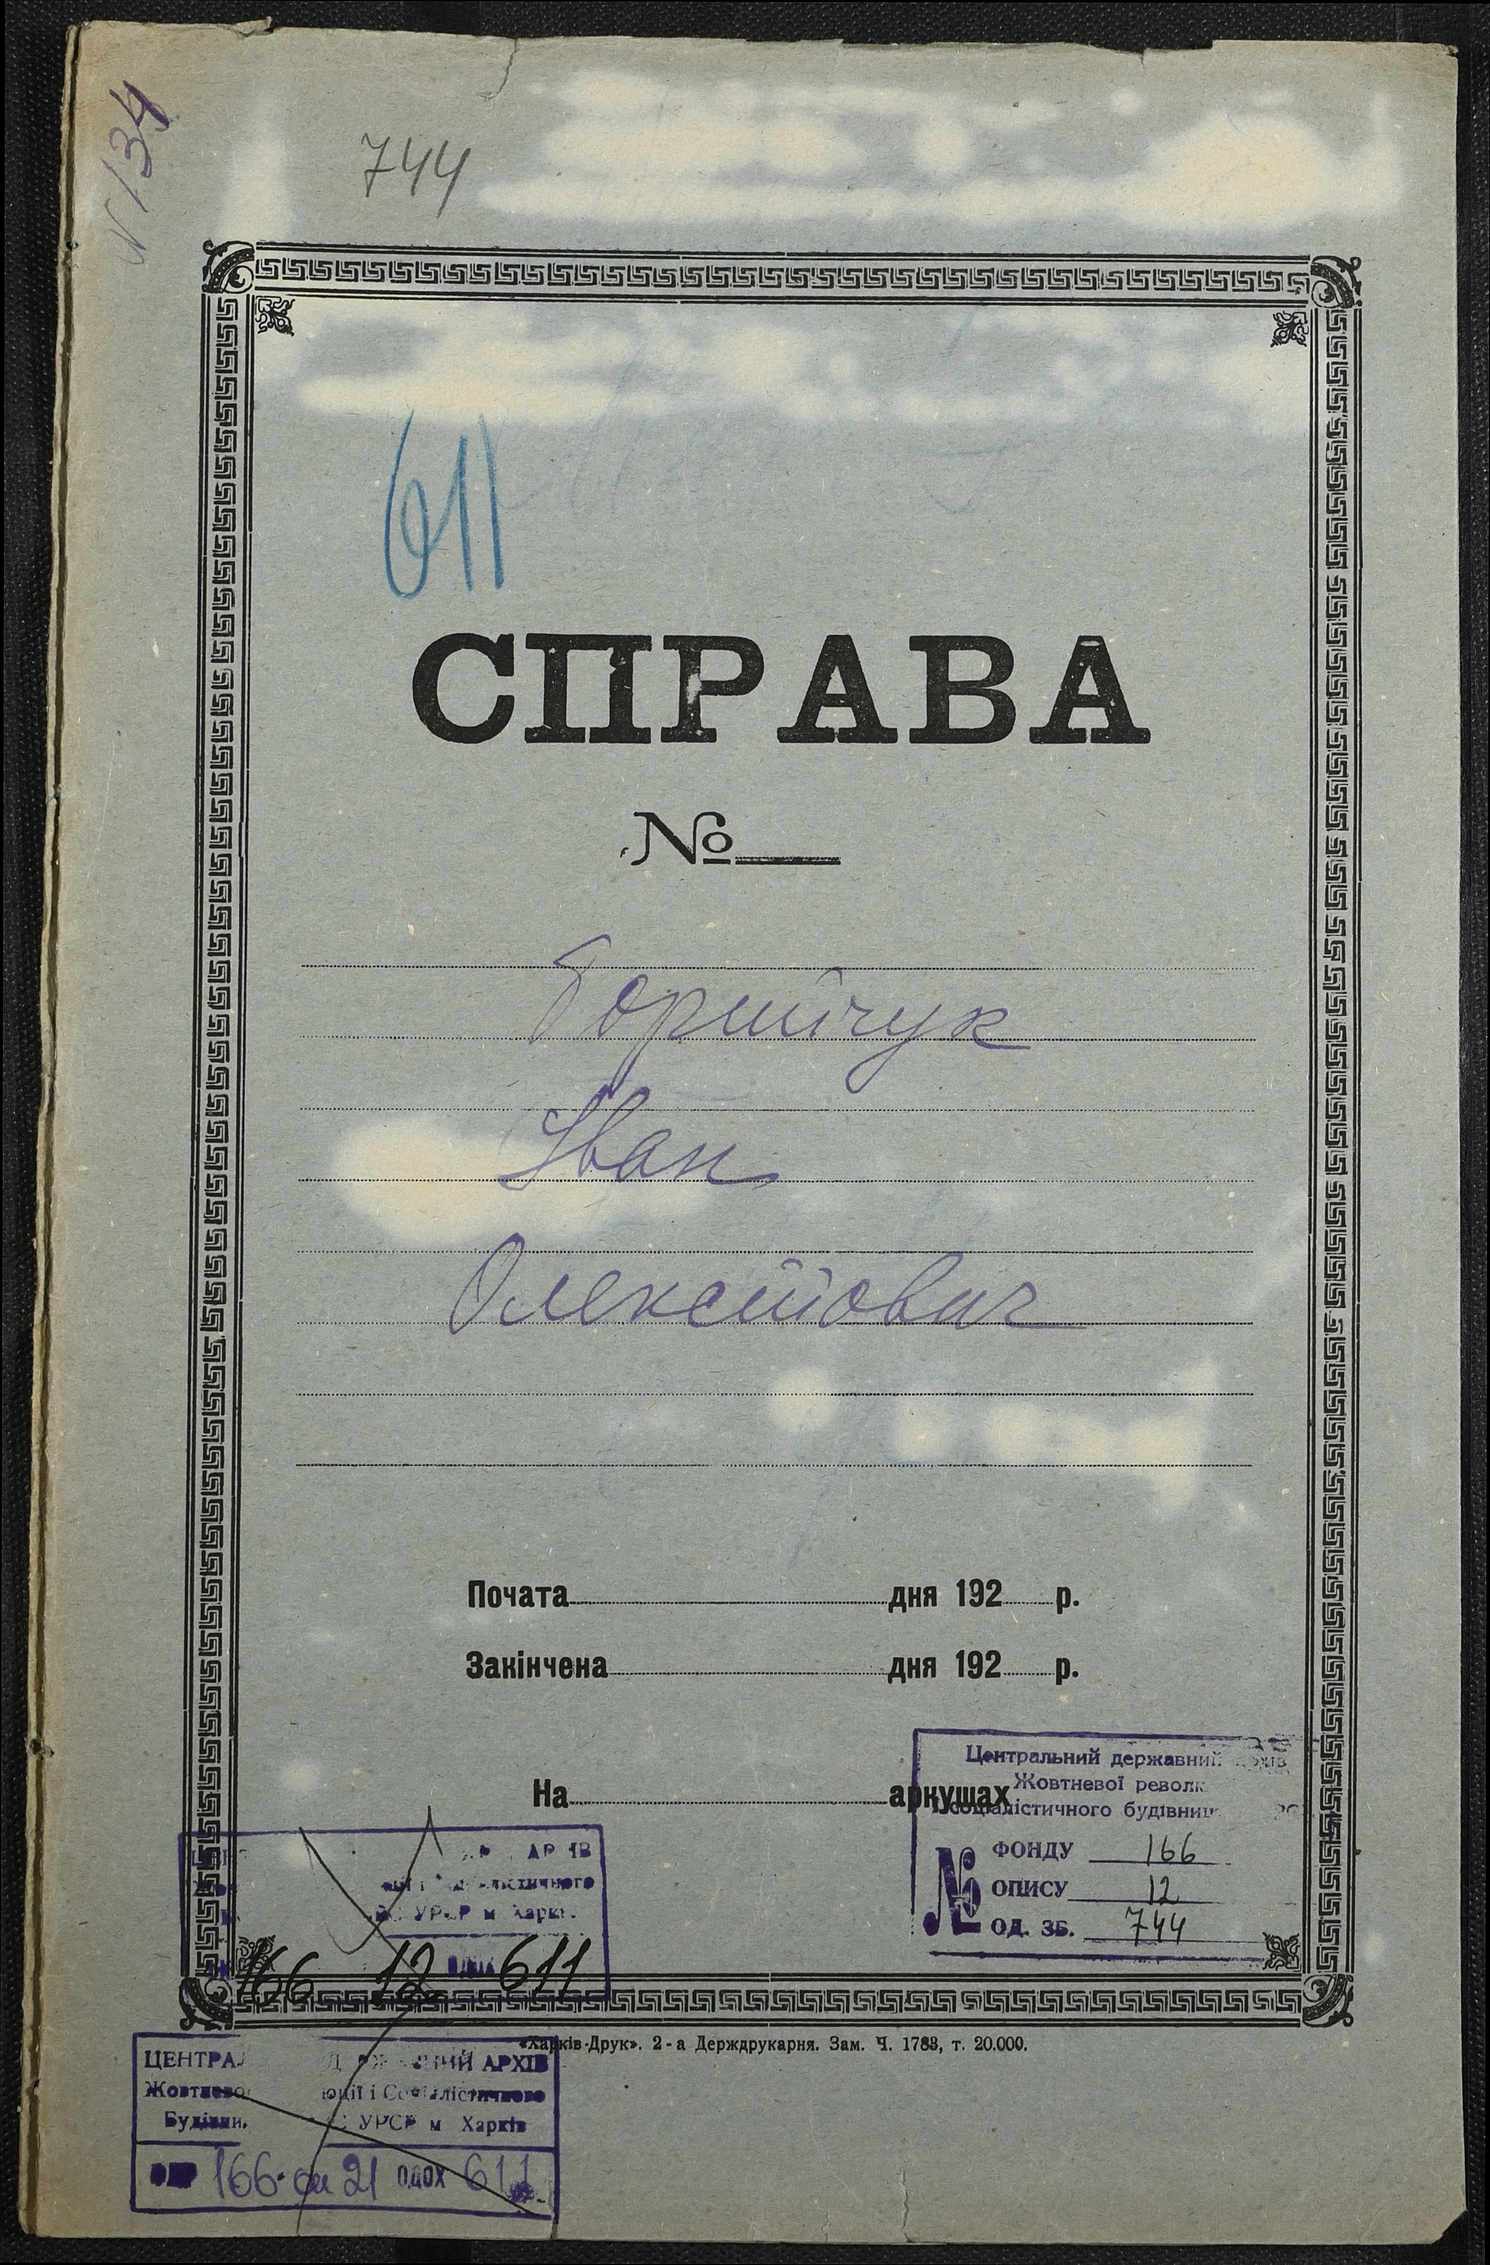 N 134
744
611
СПРАВА
№
Іван
Олексійович
Почата дня 192 р.
Закінчена дня 192 р.
На аркушах
Центральний державний архів
Жовтневої револ
соціалістичного будівниц
№ ФОНДУ 166
ОПИСУ 12
ОД. ЗБ. 744
АРХІВ
УРСР м Харк
166 12 611
«Харків-Друк». 2-а Держдрукарня. Зам. Ч. 1783, т. 20.000.
ЦЕНТРАЛ ДЕРЖАВНИЙ АРХІВ
Жовтнево юції і Соціалістичного
Будівни УРСР м Харків
166 оп 21 ОДОХ 611